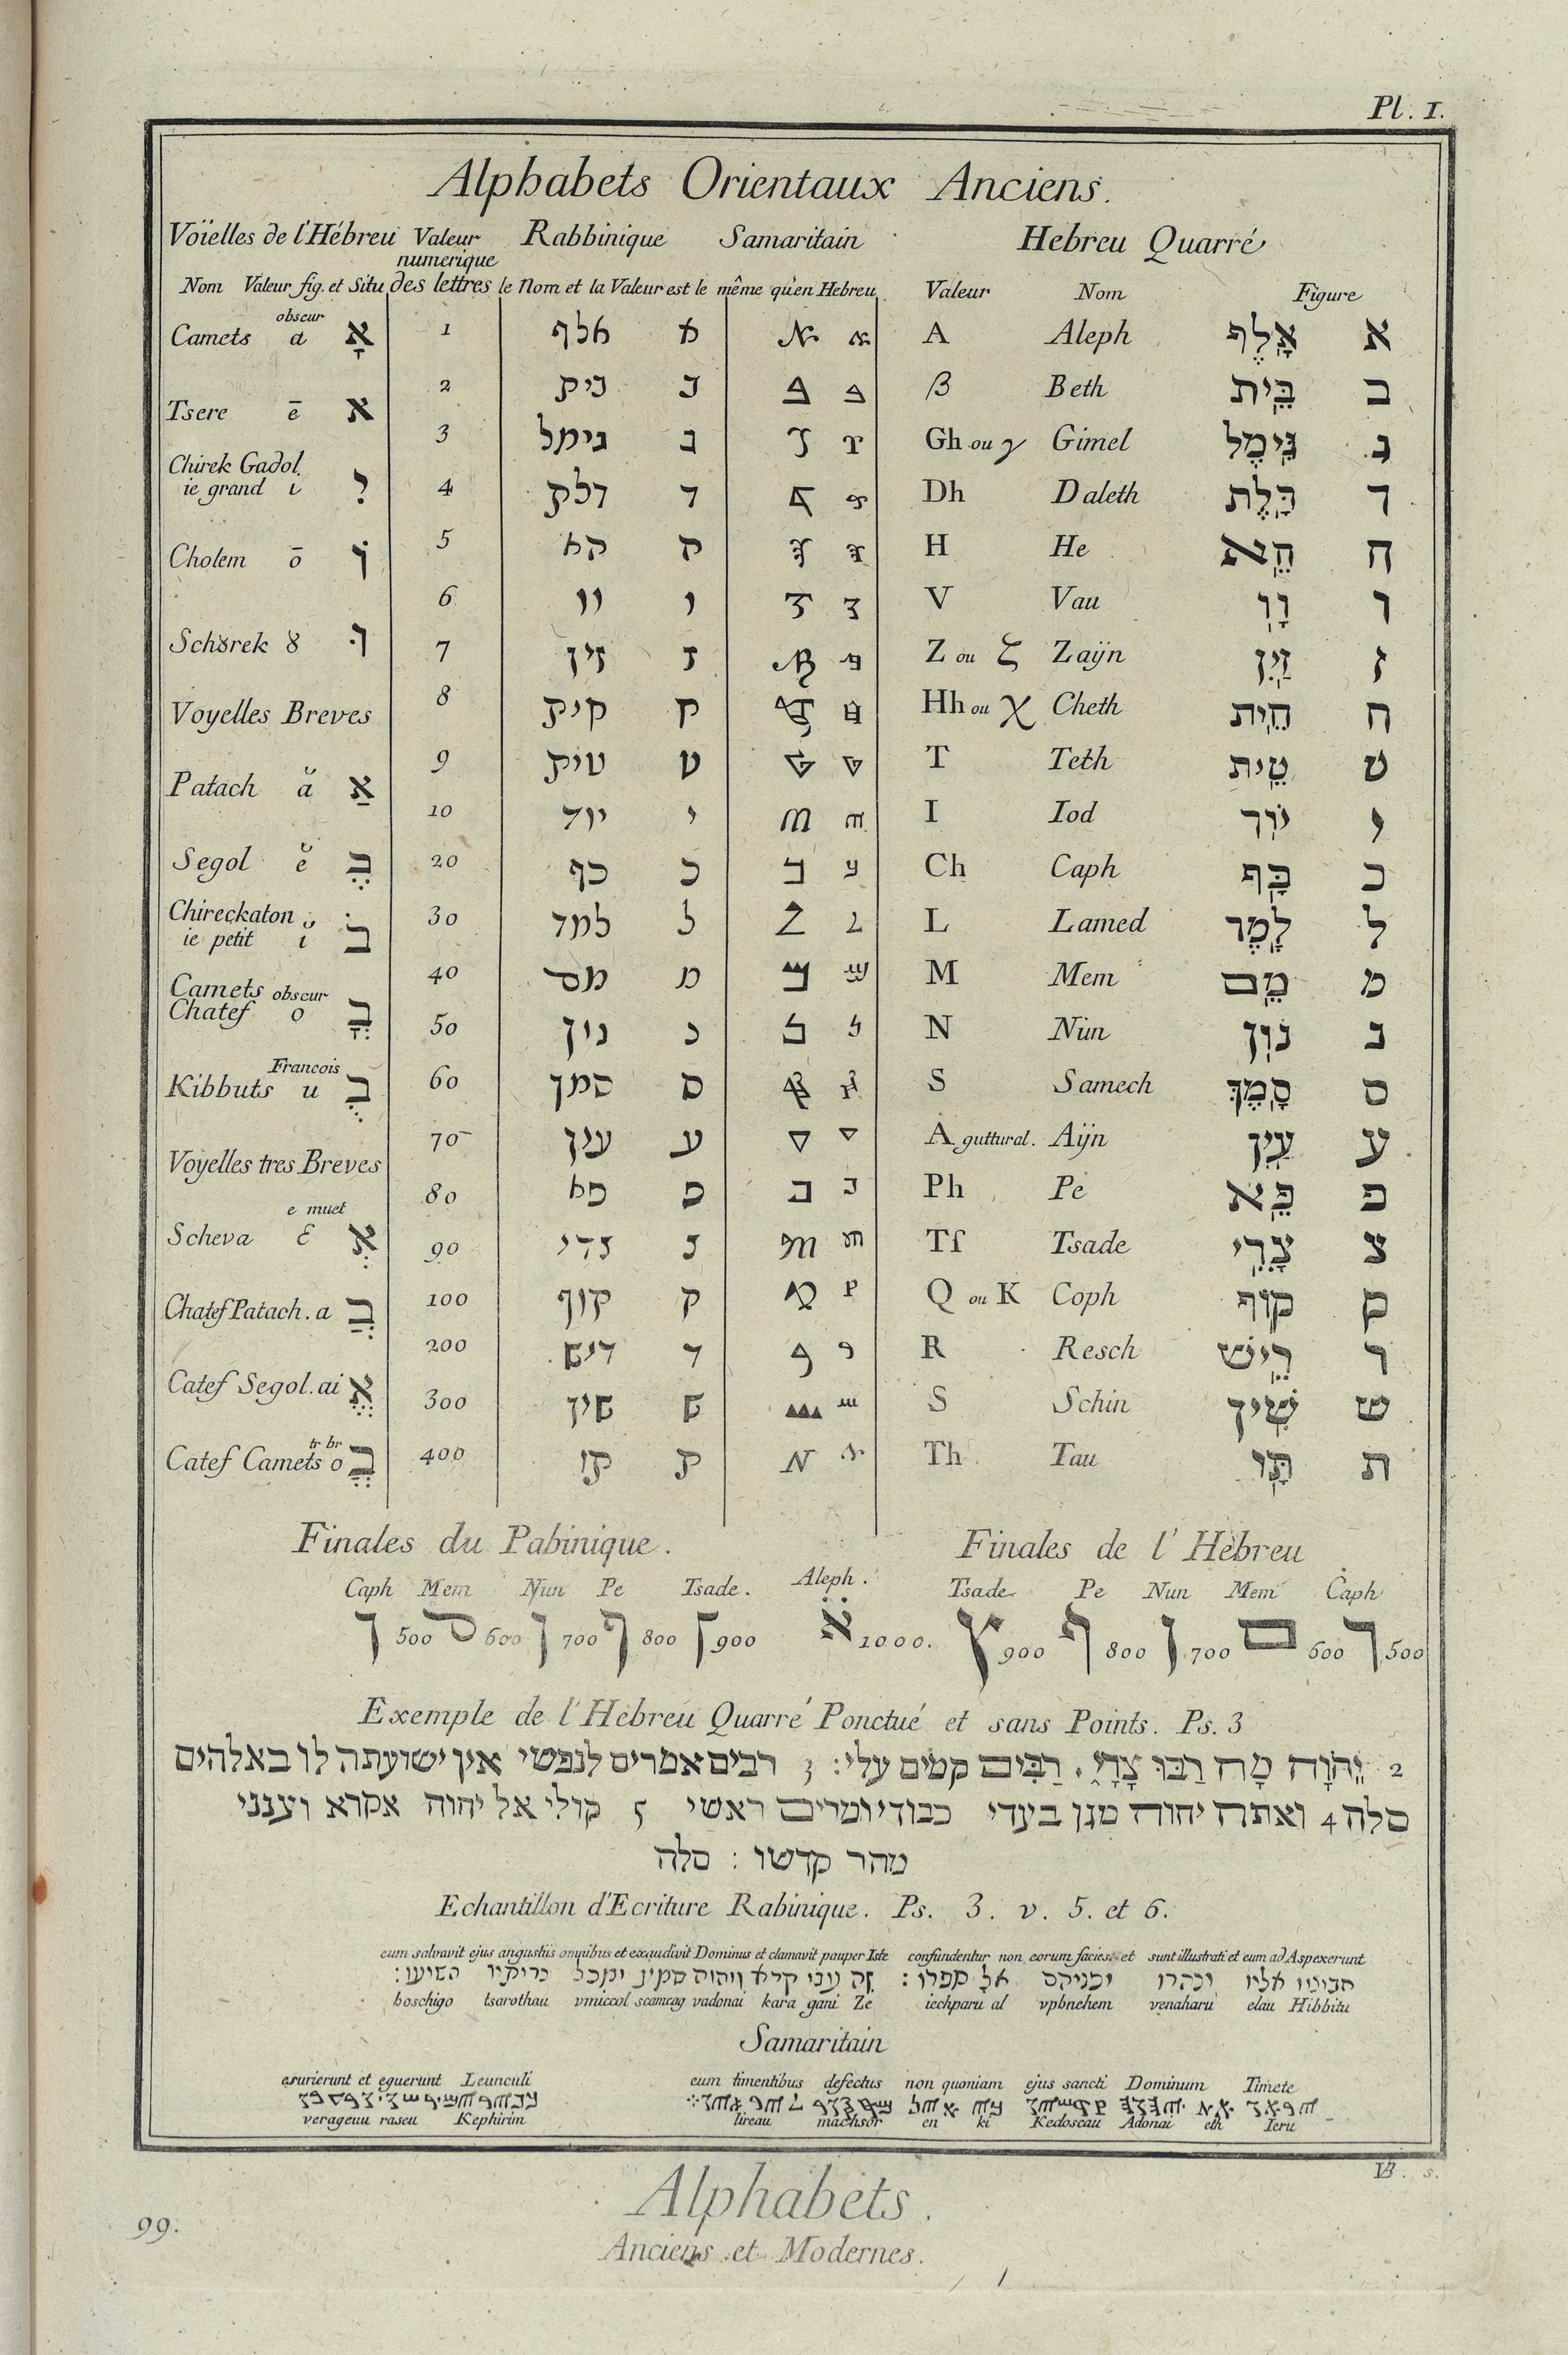 Pl. I.
Alphabets Orientaux Anciens.
Voïelles de l'Hébreu Valeur numerique des lettres Rabbinique Samaritain Hebreu Quarré
Nom Valeur fig. et Situ le Nom et la Valeur est le même qu'en Hebreu Valeur Nom Figure
Camets obscur a אָ 1 אלף א A Aleph אָלֶף א
2 בית ב B Beth בֵּית ב
Tsere ē א
3 גימל ג Gh ou γ Gimel גִּימֶל ג
Chirek Gadol
ie grand i יִ 4 דלת ד Dh Daleth דָּלֶת ד
Cholem ō וֹ 5 הא ה H He הֵא ה
6 וו ו V Vau וָו ו
Schȣrek ȣ וּ 7 זין ז Z ou ζ Zaÿn זַיִן ז
Voyelles Breves 8 חית ח Hh ou χ Cheth חֵית ח
Patach ă אַ 9 טית ט T Teth טֵית ט
10 יוד י I Iod יוֹד י
Segol ĕ בֶ 20 כף כ Ch Caph כָּף כ
Chireckaton
ie petit ĭ 30 למד ל L Lamed לָמֶד ל
Camets obscur
Chatef o 40 מם מ M Mem מֵם מ
50 נון נ N Nun נוּן נ
Kibbuts Francois u בֻ 60 סמך ס S Samech סָמֶךְ ס
Voyelles tres Breves 70 עין ע A guttural. Aÿn עַיִן ע
80 פא פ Ph Pe פֵּא פ
Scheva e muet ε אְ 90 צדי צ Tſ Tsade צָדֵי צ
Chatef Patach. a בֲ 100 קוף ק Q ou K Coph קוֹף ק
200 ריש ר R Resch רֵישׁ ר
Catef Segol. ai אֱ 300 שין ש S Schin שִׁין ש
Catef Camets tr br o בֳ 400 תו ת Th Tau תָּו ת
Finales du Pabinique. Finales de l'Hébreu
Caph Mem Nun Pe Tsade. Aleph. Tsade Pe Nun Mem Caph
ך 500 ם 600 ן 700 ף 800 ץ 900 א 1000. ץ 900 ף 800 ן 700 ם 600 ך 500
Exemple de l'Hebreu Quarré Ponctué et sans Points. Ps. 3
2 יְהוָה מָה רַבּוּ צָרָי, רַבִּים קמים עלי: 3 רבים אמרים לנפשי אין ישועתה לו באלהים
סלה 4 ואתה יהוה מגן בעדי כבודי ומרים ראשי 5 קולי אל יהוה אקרא ויענני
מהר קדשו : סלה
Echantillon d'Ecriture Rabinique. Ps. 3. v. 5. et 6.
eum salvavit ejus angustiis omnibus et exaudivit Dominus et clamavit pauper Iste confundentur non eorum facies. et sunt illustrati et eum ad Aspexerunt
הביטו אליו ונהרו ופניהם אל יחפרו : זה עני קרא ויהוה שמיע ומכל צרותיו הושיעו :
hoschigo tsarothau vmiccol scamcag vadonai kara gani Ze iechparu al vphnehem venaharu elau Hibbitu
Samaritain
esurierunt et eguerunt Leunculi eum timentibus defectus non quoniam ejus sancti Dominum Timete
verageuu raseu Kephirim lireau machsor en ki Kedoscau Adonai eth Ieru
B. s.
Alphabets.
99.
Anciens et Modernes.